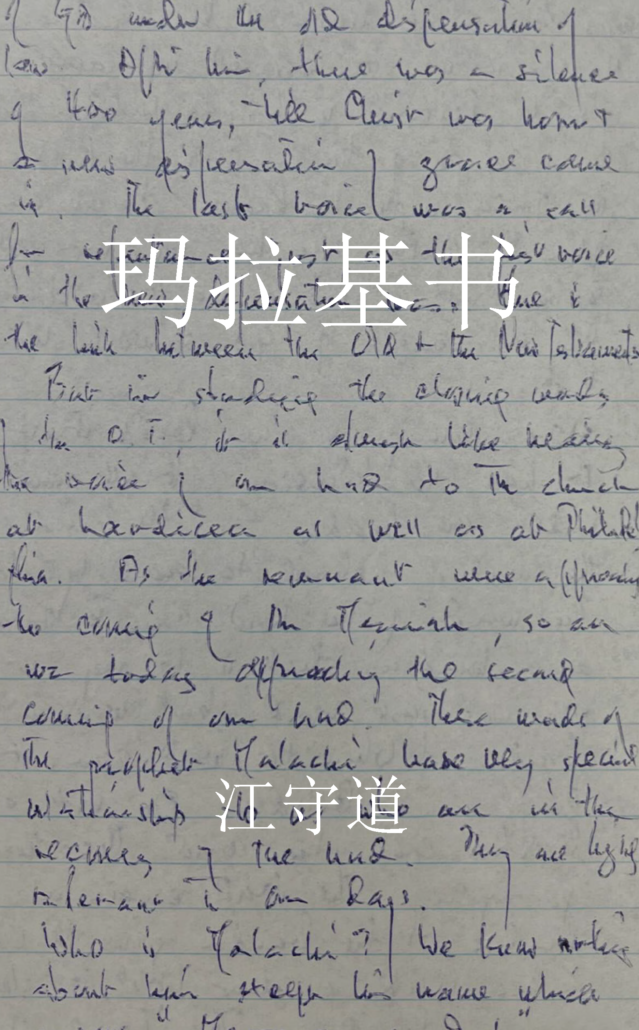 of God under the old dispensation of
law. After him, there was a silence
of 400 years, till Christ was born &
a new dispensation of grace came
in. The last voice was a call
for repentance just as the first voice
玛拉基书
in the new dispensation was. Here is
the link between the Old & the New Testaments
But in studying the closing words
of the O.T., it is almost like hearing
the voice of our Lord to the church
at Laodicea as well as at Philadel
phia. As the remnant were approaching
the coming of the Messiah, so are
we today approaching the second
coming of our Lord. These words of
the prophet Malachi have very special
江守道
relationship to us who are in the
recovery of the Lord. They are highly
relevant to our days.
Who is Malachi? We know nothing
about him except his name which